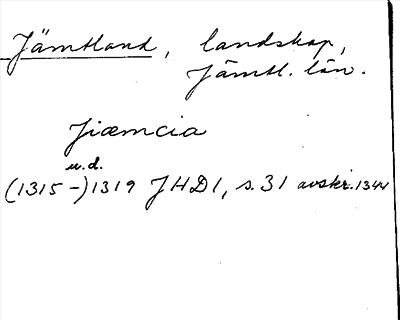 Jämtland, landskap,
Jämtl. län.
Jiæmcia
u.d.
(1315-)1319 JHD1, s.31 avskr.1344